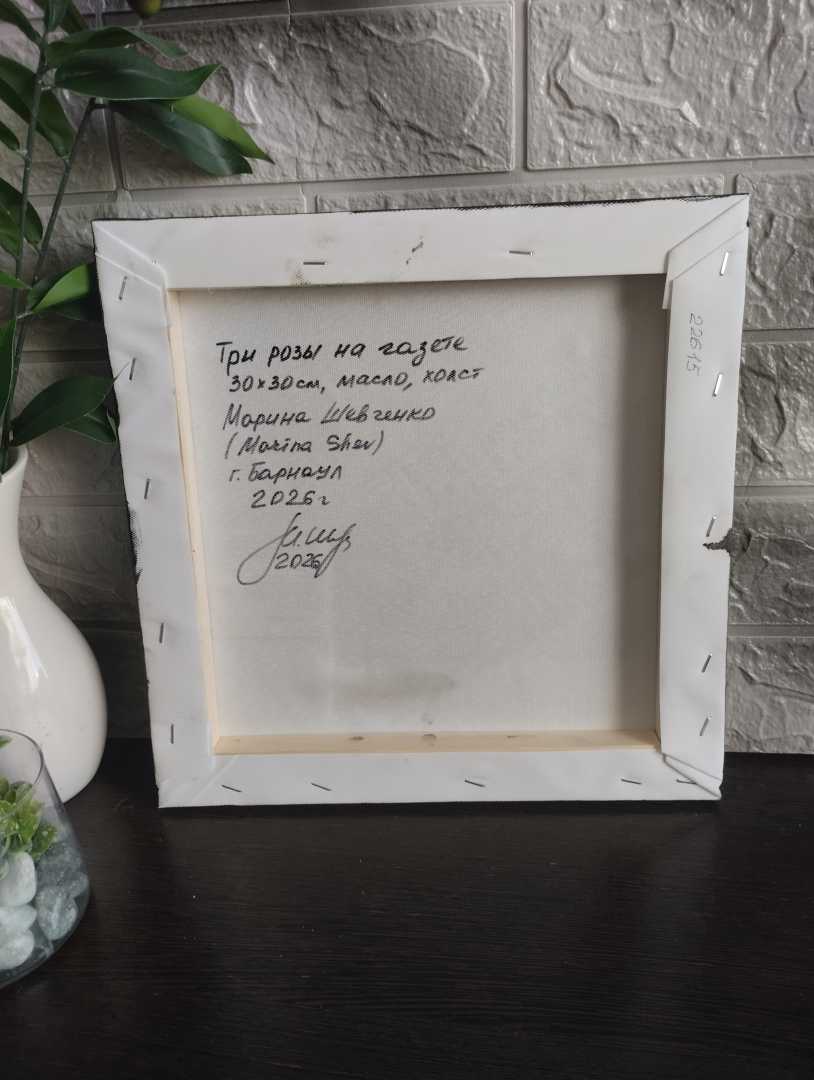 Три розы на газете
30х30см, масло, холст
Марина Шевченко
(Marina Shev)
г. Барнаул
2026г
2026
22615